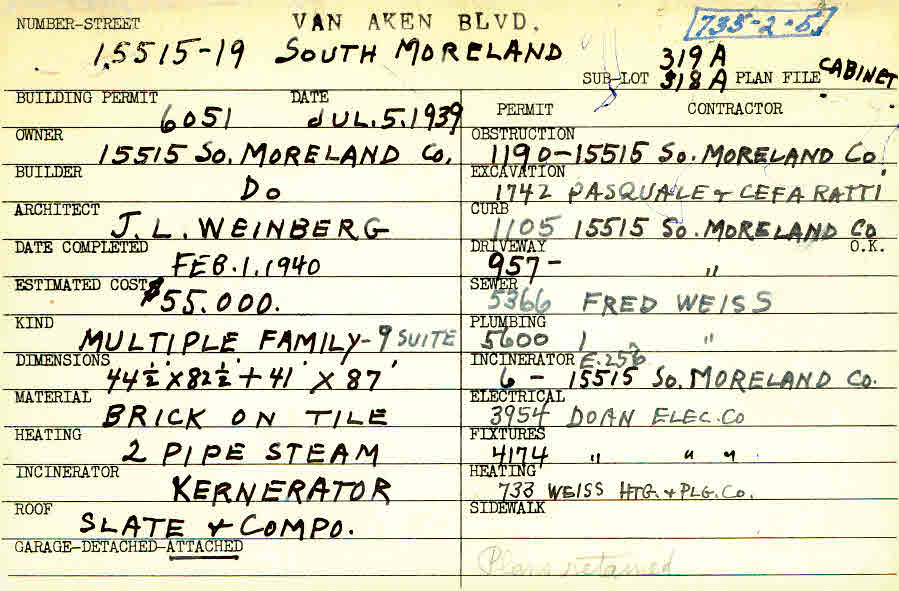 NUMBER-STREET VAN AKEN BLVD. 735-2-5
15515-19 SOUTH MORELAND 319A
SUB-LOT 318A PLAN FILE CABINET
BUILDING PERMIT DATE PERMIT CONTRACTOR
6051 JUL.5.1939
OWNER OBSTRUCTION
15515 SO. MORELAND CO. 1190-15515 SO. MORELAND CO
BUILDER EXCAVATION
DO 1742 PASQUALE & CEFARATTI
ARCHITECT CURB
J.L. WEINBERG 1105 15515 SO. MORELAND CO
DATE COMPLETED DRIVEWAY O.K.
FEB.1.1940 957- "
ESTIMATED COST SEWER
$55.000. 5366 FRED WEISS
KIND PLUMBING
MULTIPLE FAMILY-9 SUITE 5600 "
DIMENSIONS INCINERATOR E.256
44½' X 82½' + 41' X 87' 6 - 15515 SO. MORELAND CO.
MATERIAL ELECTRICAL
BRICK ON TILE 3954 DOAN ELEC. CO
HEATING FIXTURES
2 PIPE STEAM 4174 " " "
INCINERATOR HEATING
KERNERATOR 733 WEISS HTG. & PLG. CO.
ROOF SIDEWALK
SLATE & COMPO.
GARAGE-DETACHED-ATTACHED
Plans retained